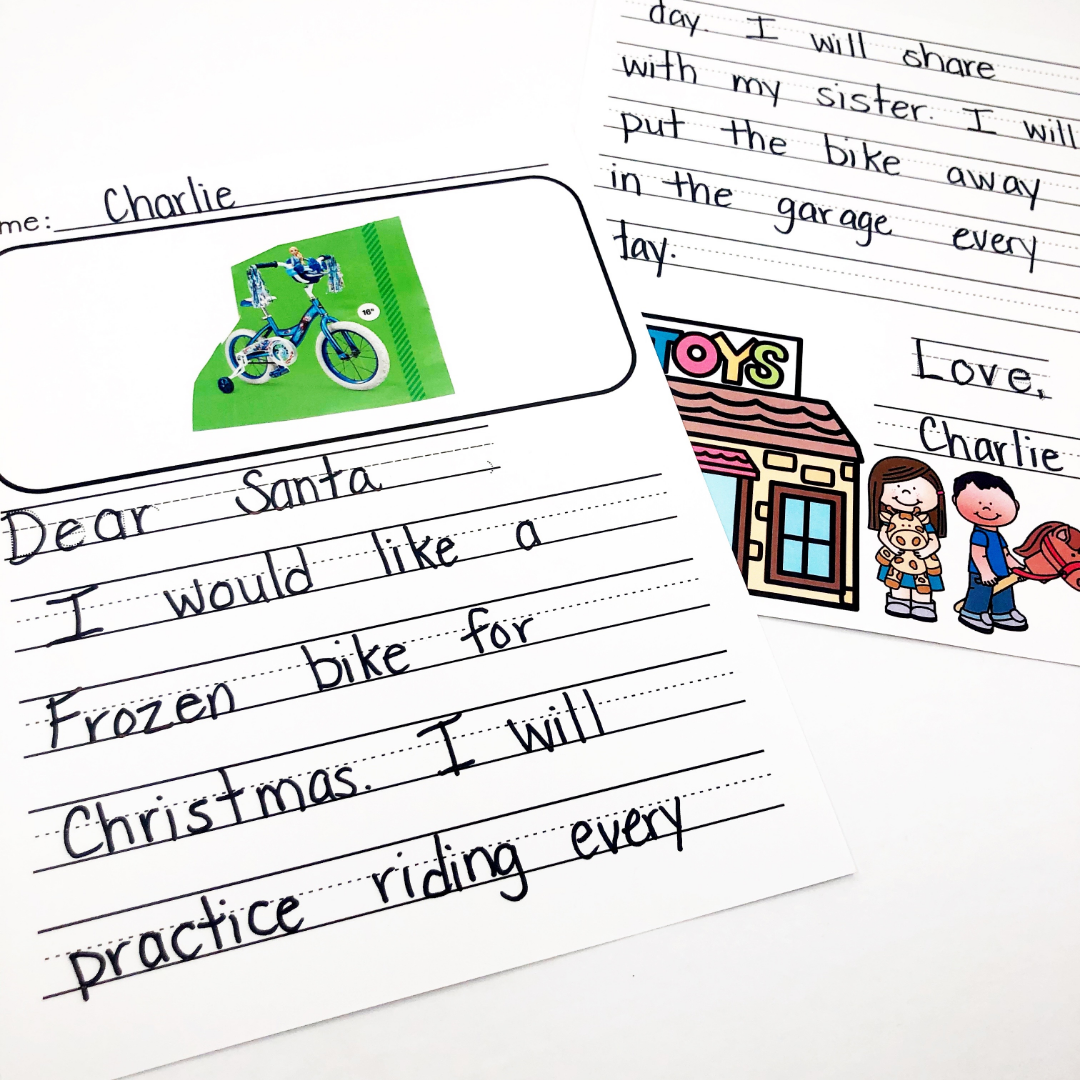 me: Charlie
16"
Dear Santa
I would like a
Frozen bike for
Christmas. I will
practice riding every
day. I will share
with my sister. I will
put the bike away
in the garage every
tay.
TOYS
Love,
Charlie